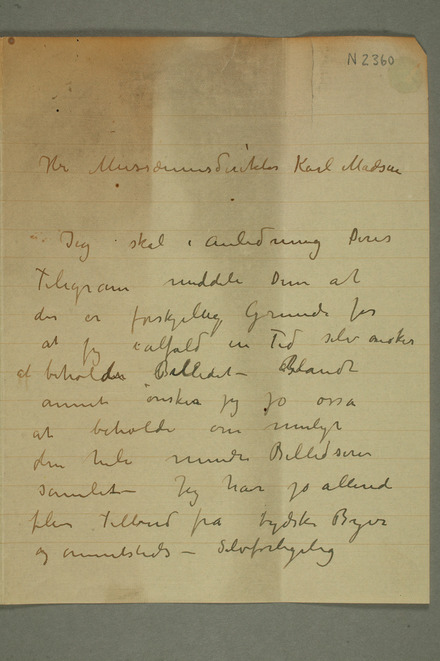 N 2360
Hr Museumsdirektør Karl Madsen
Jeg skal i Anledning Deres
Telegram meddele Dem at
der er forskjellig Grunde for
at jeg ialfald en Tid selv ønsker
at beholde Billedet – Blandt
annet ønsker jeg jo ossa
at beholde om muligt
den hele mindre Billedserie
samlet – Jeg har jo allerede
flere Tilbud fra tydske Byer
og annetsteds – Selvfølgelig